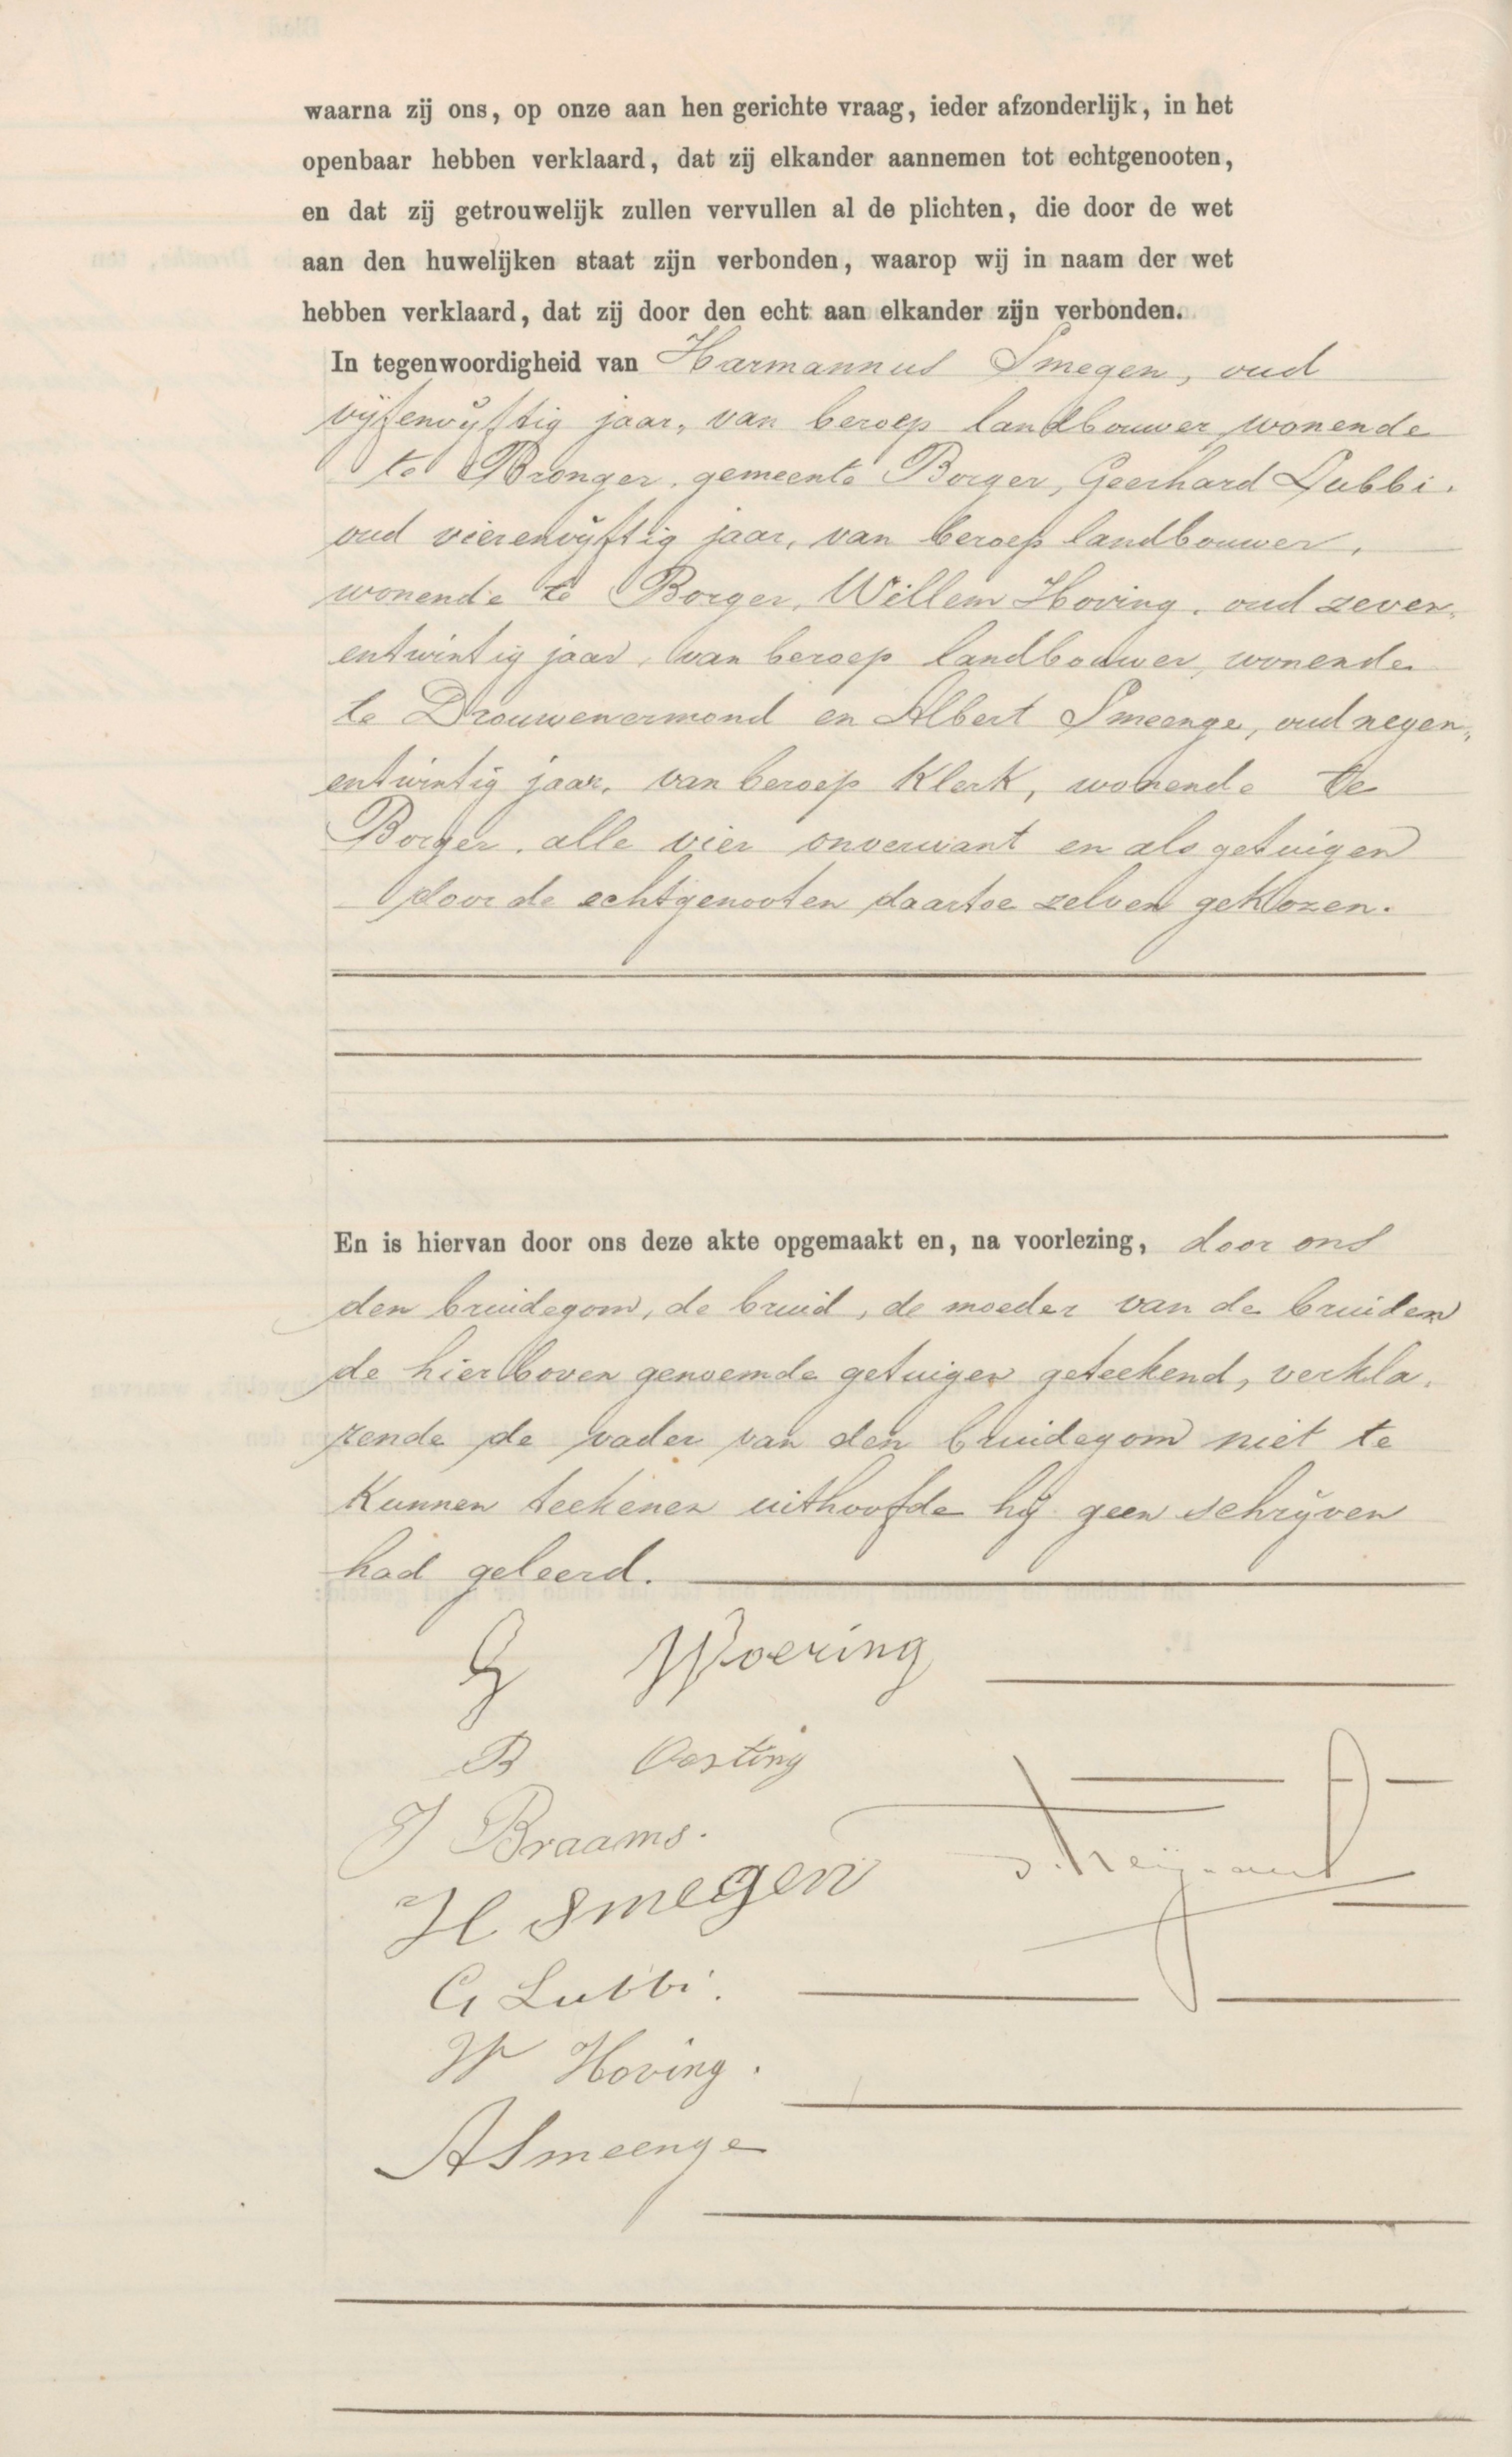 waarna zij ons, op onze aan hen gerichte vraag, ieder afzonderlijk, in het
openbaar hebben verklaard, dat zij elkander aannemen tot echtgenooten,
en dat zij getrouwelijk zullen vervullen al de plichten, die door de wet
aan den huwelijken staat zijn verbonden, waarop wij in naam der wet
hebben verklaard, dat zij door den echt aan elkander zijn verbonden.
In tegenwoordigheid van Harmannus Smegen, oud
vijfenvijftig jaar, van beroep landbouwer wonende
te Bronger, gemeente Borger, Geerhard Lubbi,
oud vierenvijftig jaar, van beroep landbouwer,
wonende te Borger, Willem Hoving, oud zeven-
entwintig jaar, van beroep landbouwer, wonende
te Drouwenermond en Albert Smeenge, oud negen-
entwintig jaar, van beroep Klerk, wonende te
Borger, alle vier onverwant en als getuigen
door de echtgenooten daartoe zelven gekozen.
En is hiervan door ons deze akte opgemaakt en, na voorlezing, door ons
den bruidegom, de bruid, de moeder van de bruid en
de hierboven genoemde getuigen geteekend, verkla-
rende de vader van den bruidegom niet te
Kunnen teekenen uithoofde hij geen schrijven
had geleerd.
G Woering
B Oosting
J Braams.
H Smegen
G Lubbi.
W Hoving.
A Smeenge